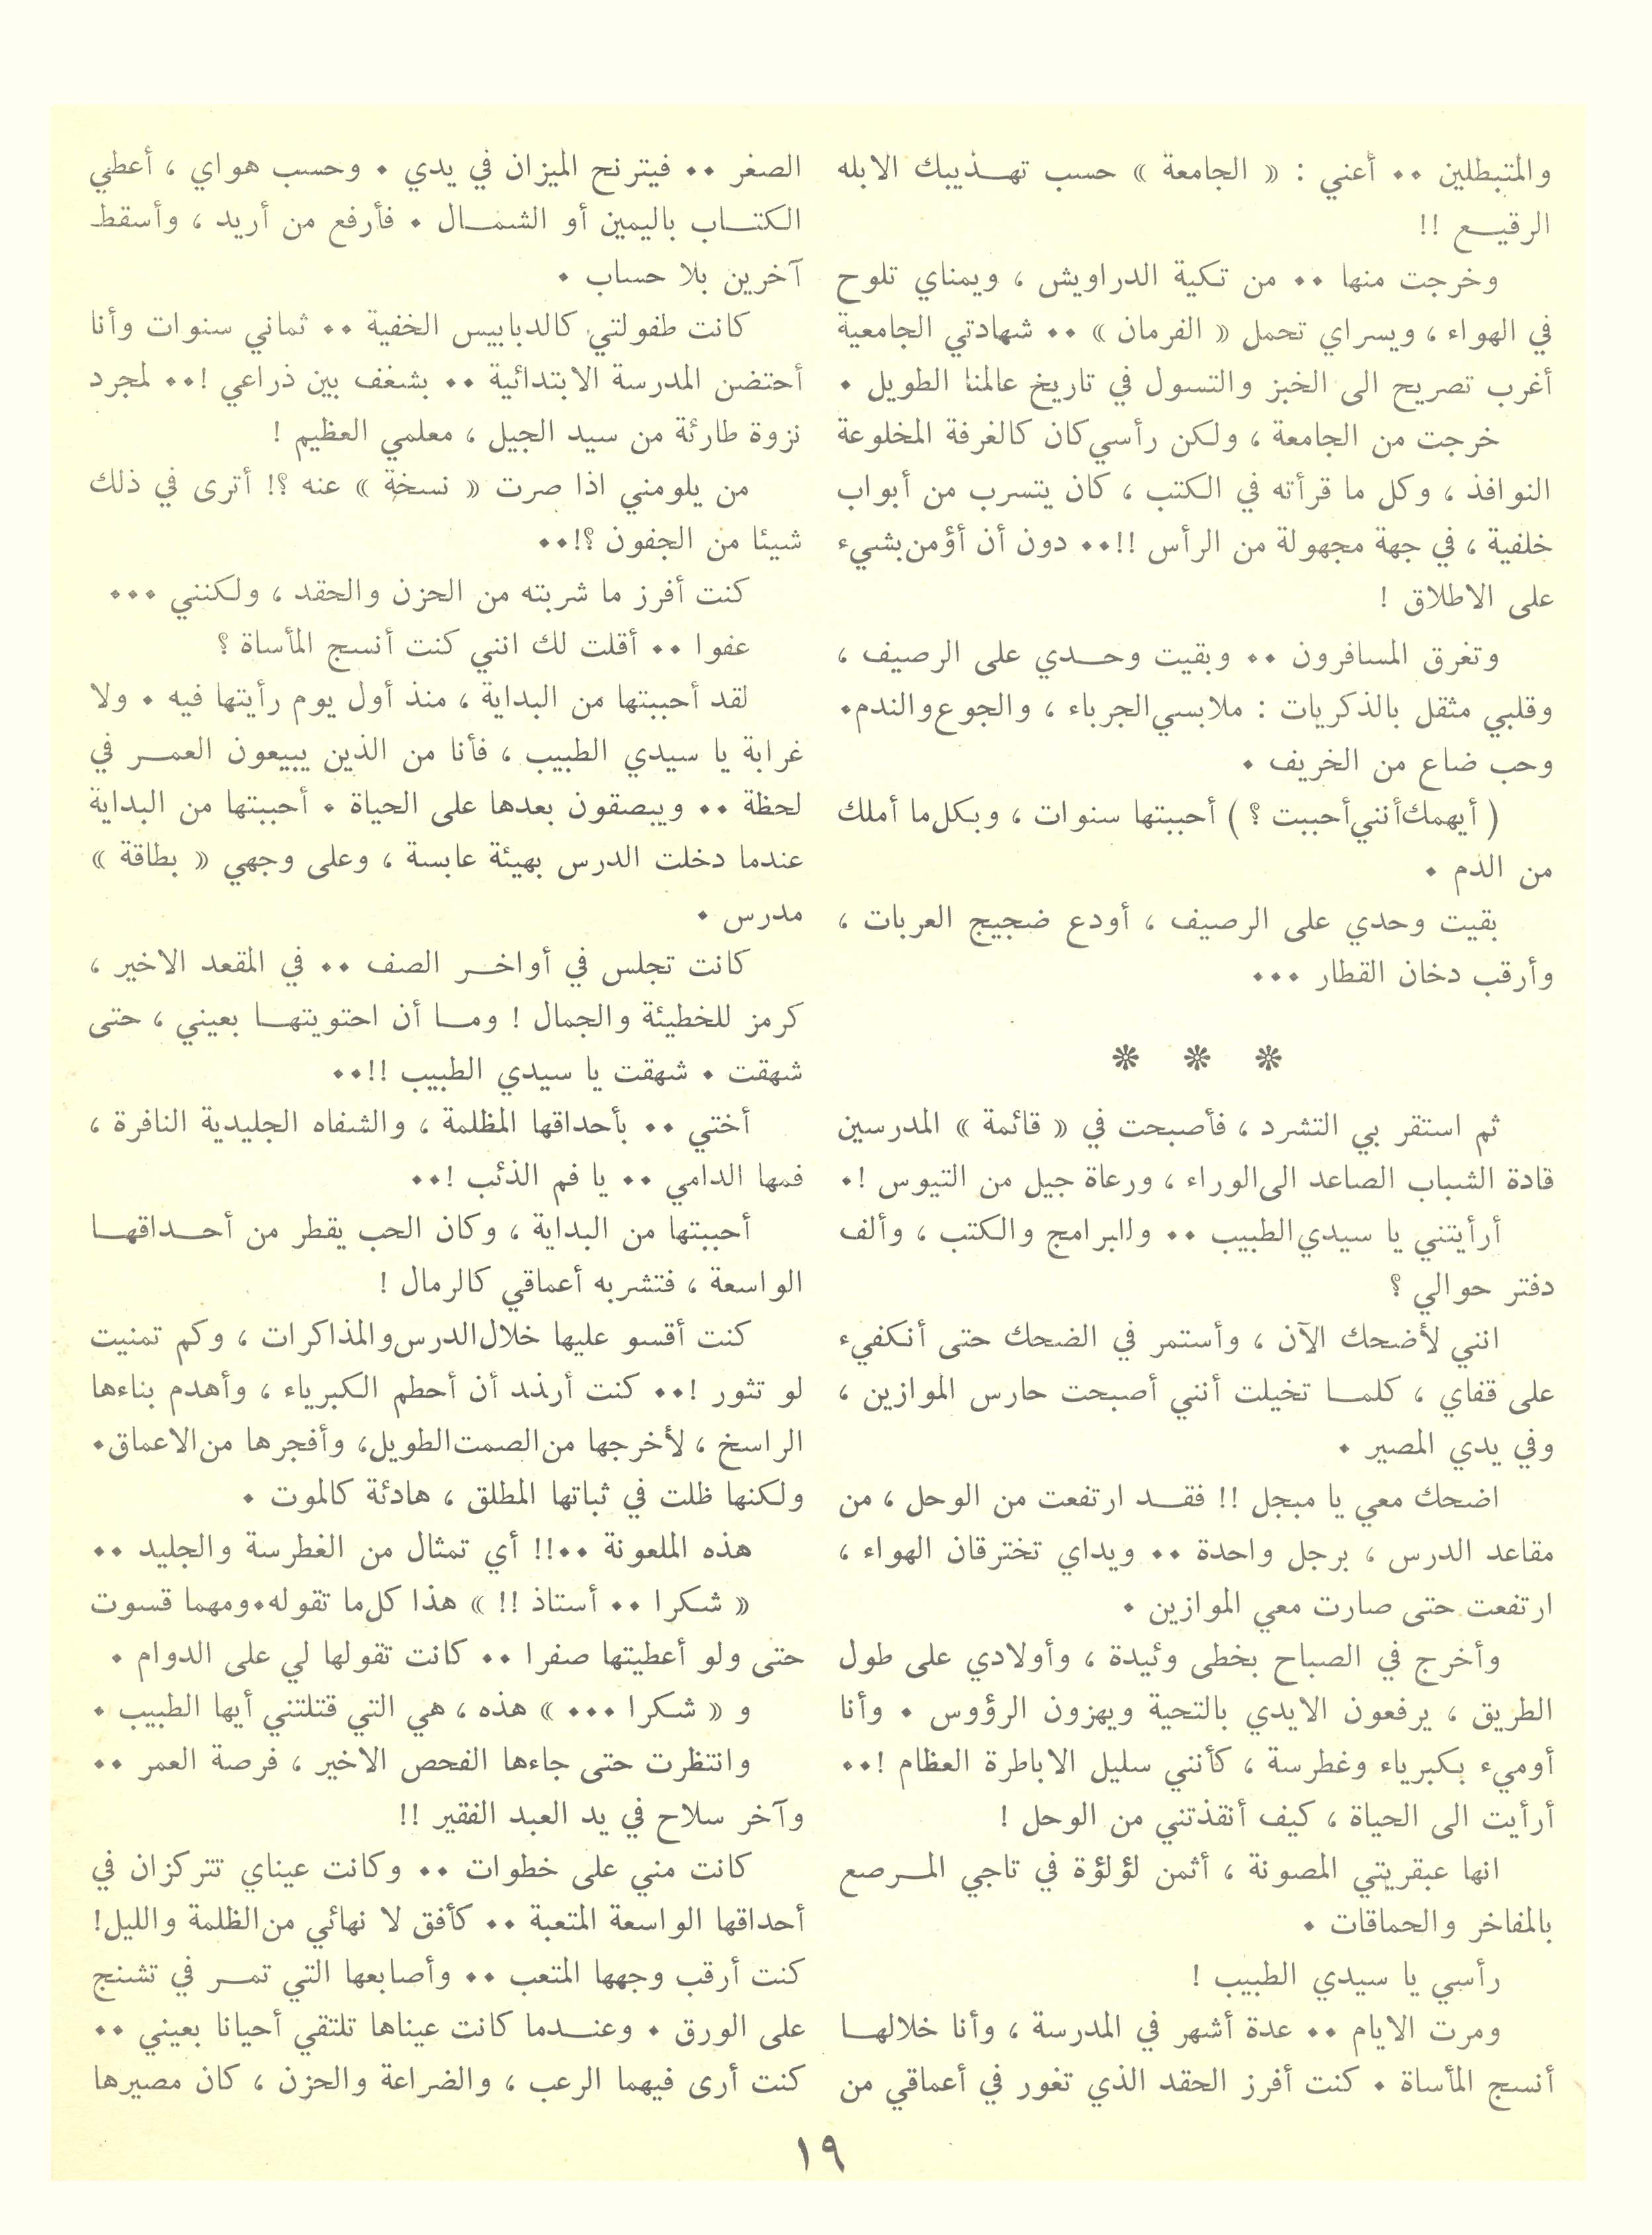 والمتبطلين ٠٠ أعني : « الجامعة » حسب تهـذيبك الابله
الرقيـع !!
وخرجت منها ٠٠ من تكية الدراويش ، ويمناي تلوح
في الهواء ، ويسراي تحمل « الفرمان » ٠٠ شهادتي الجامعية
أغرب تصريح الى الخبز والتسول في تاريخ عالمنا الطويل ٠
خرجت من الجامعة ، ولكن رأسي كان كالغرفة المخلوعة
النوافذ ، وكل ما قرأته في الكتب ، كان يتسرب من أبواب
خلفية ، في جهة مجهولة من الرأس !!٠٠ دون أن أؤمن بشيء
على الاطلاق !
وتغرق المسافرون ٠٠ وبقيت وحـدي على الرصيف ،
وقلبي مثقل بالذكريات : ملابسي الجرباء ، والجوع والندم٠
وحب ضاع من الخريف ٠
( أيهمك أنني أحببت ؟ ) أحببتها سنوات ، وبكل ما أملك
من الدم ٠
بقيت وحدي على الرصيف ، أودع ضجيج العربات ،
وأرقب دخان القطار ٠٠٠
※ ※ ※
ثم استقر بي التشرد ، فأصبحت في « قائمة » المدرسين
قادة الشباب الصاعد الى الوراء ، ورعاة جيل من التيوس !٠
أرأيتني يا سيدي الطبيب ٠٠ والبرامج والكتب ، وألف
دفتر حوالي ؟
انني لأضحك الآن ، وأستمر في الضحك حتى أنكفيء
على قفاي ، كلمـا تخيلت أنني أصبحت حارس الموازين ،
وفي يدي المصير ٠
اضحك معي يا مبجل !! فقـد ارتفعت من الوحل ، من
مقاعد الدرس ، برجل واحدة ٠٠ ويداي تخترقان الهواء ،
ارتفعت حتى صارت معي الموازين ٠
وأخرج في الصباح بخطى وئيدة ، وأولادي على طول
الطريق ، يرفعون الايدي بالتحية ويهزون الرؤوس ٠ وأنا
أوميء بكبرياء وغطرسة ، كأنني سليل الاباطرة العظام !٠٠
أرأيت الى الحياة ، كيف أنقذتني من الوحل !
انها عبقريتي المصونة ، أثمن لؤلؤة في تاجي المـرصع
بالمفاخر والحماقات ٠
رأسي يا سيدي الطبيب !
ومرت الايام ٠٠ عدة أشهر في المدرسة ، وأنا خلالهـا
أنسج المأساة ٠ كنت أفرز الحقد الذي تغور في أعماقي من
الصغر ٠٠ فيترنح الميزان في يدي ٠ وحسب هواي ، أعطي
الكتـاب باليمين أو الشمـال ٠ فأرفع من أريد ، وأسقط
آخرين بلا حساب ٠
كانت طفولتي كالدبابيس الخفية ٠٠ ثماني سنوات وأنا
أحتضن المدرسة الابتدائية ٠٠ بشغف بين ذراعي !٠٠ لمجرد
نزوة طارئة من سيد الجيل ، معلمي العظيم !
من يلومني اذا صرت « نسخة » عنه ؟! أترى في ذلك
شيئا من الجفون ؟!٠٠
كنت أفرز ما شربته من الحزن والحقد ، ولكنني ٠٠٠
عفوا ٠٠ أقلت لك انني كنت أنسج المأساة ؟
لقد أحببتها من البداية ، منذ أول يوم رأيتها فيه ٠ ولا
غرابة يا سيدي الطبيب ، فأنا من الذين يبيعون العمـر في
لحظة ٠٠ ويبصقون بعدها على الحياة ٠ أحببتها من البداية
عندما دخلت الدرس بهيئة عابسة ، وعلى وجهي « بطاقة »
مدرس ٠
كانت تجلس في أواخـر الصف ٠٠ في المقعد الاخير ،
كرمز للخطيئة والجمال ! ومـا أن احتويتهـا بعيني ، حتى
شهقت ٠ شهقت يا سيدي الطبيب !!٠٠
أختي ٠٠ بأحداقها المظلمة ، والشفاه الجليدية النافرة ،
فمها الدامي ٠٠ يا فم الذئب !٠٠
أحببتها من البداية ، وكان الحب يقطر من أحـداقهـا
الواسعة ، فتشربه أعماقي كالرمال !
كنت أقسو عليها خلال الدرس والمذاكرات ، وكم تمنيت
لو تثور !٠٠ كنت أريد أن أحطم الكبرياء ، وأهدم بناءها
الراسخ ، لأخرجها من الصمت الطويل، وأفجرها من الاعماق٠
ولكنها ظلت في ثباتها المطلق ، هادئة كالموت ٠
هذه الملعونة ٠٠!! أي تمثال من الغطرسة والجليد ٠٠
« شكرا ٠٠ أستاذ !! » هذا كل ما تقوله٠ومهما قسوت
حتى ولو أعطيتها صفرا ٠٠ كانت تقولها لي على الدوام ٠
و « شكرا ٠٠٠ » هذه ، هي التي قتلتني أيها الطبيب ٠
وانتظرت حتى جاءها الفحص الاخير ، فرصة العمر ٠٠
وآخر سلاح في يد العبد الفقير !!
كانت مني على خطوات ٠٠ وكانت عيناي تتركزان في
أحداقها الواسعة المتعبة ٠٠ كأفق لا نهائي من الظلمة والليل!
كنت أرقب وجهها المتعب ٠٠ وأصابعها التي تمـر في تشنج
على الورق ٠ وعنـدما كانت عيناها تلتقي أحيانا بعيني ٠٠
كنت أرى فيهما الرعب ، والضراعة والحزن ، كان مصيرها
١٩